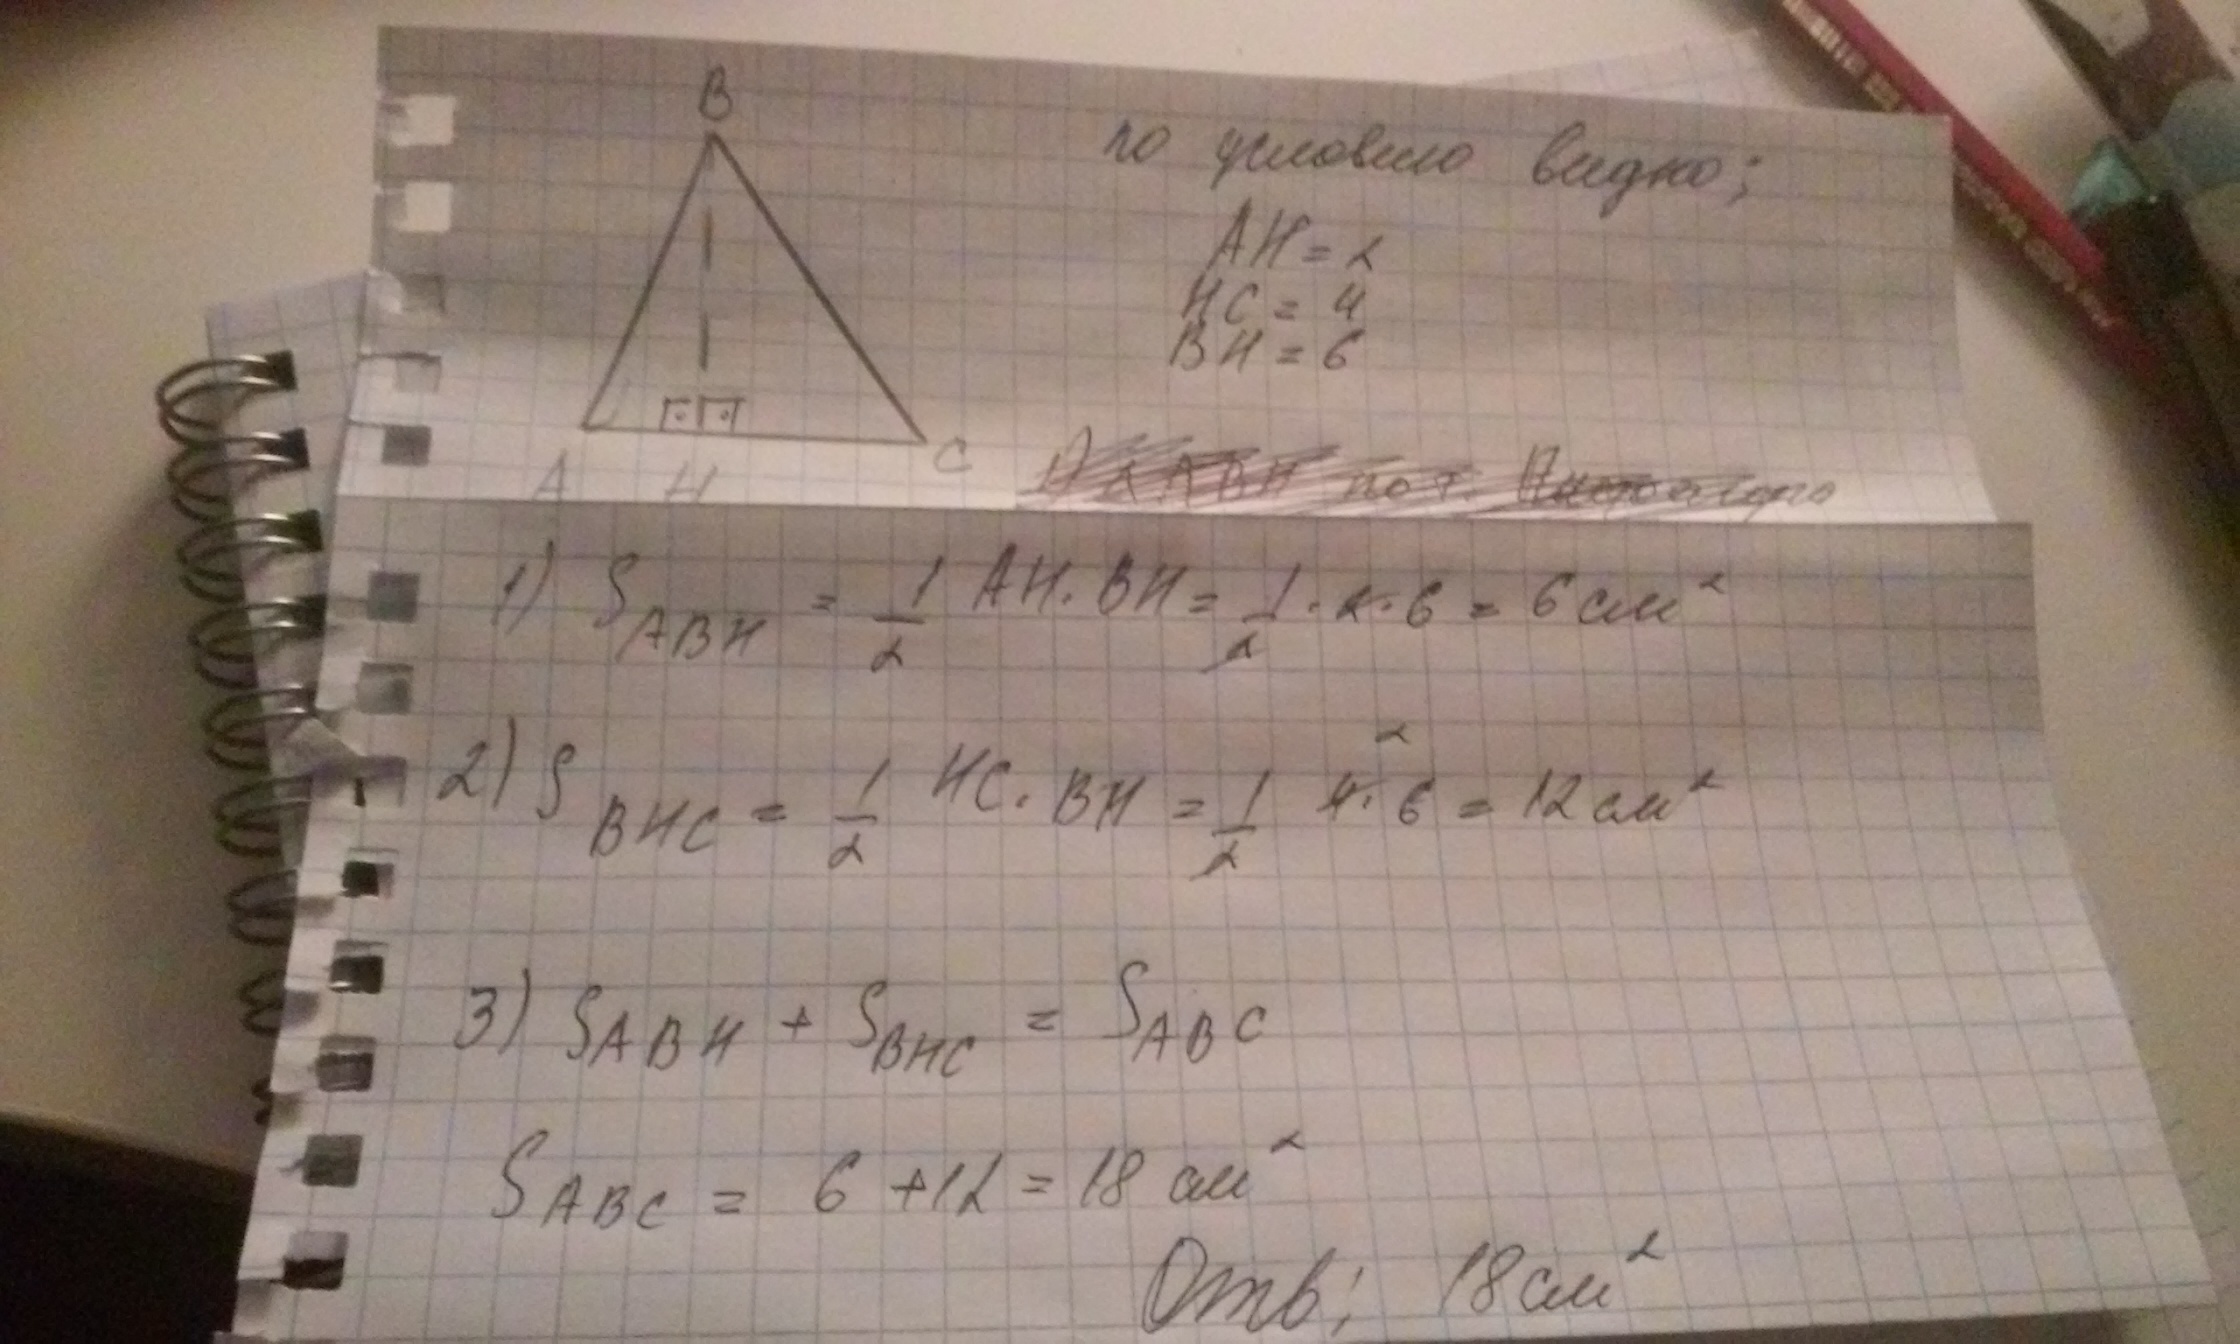 B
по условию видно;
AH = 2
HC = 4
BH = 6
A H C
ΔABH по т. Пифагора
1) S ABH = 1/2 AH · BH = 1/2 · 2 · 6 = 6 см²
2) S BHC = 1/2 HC · BH = 1/2 4 · 6 = 12 см²
2
3) S ABH + S BHC = S ABC
S ABC = 6 + 12 = 18 см²
Отв: 18 см²